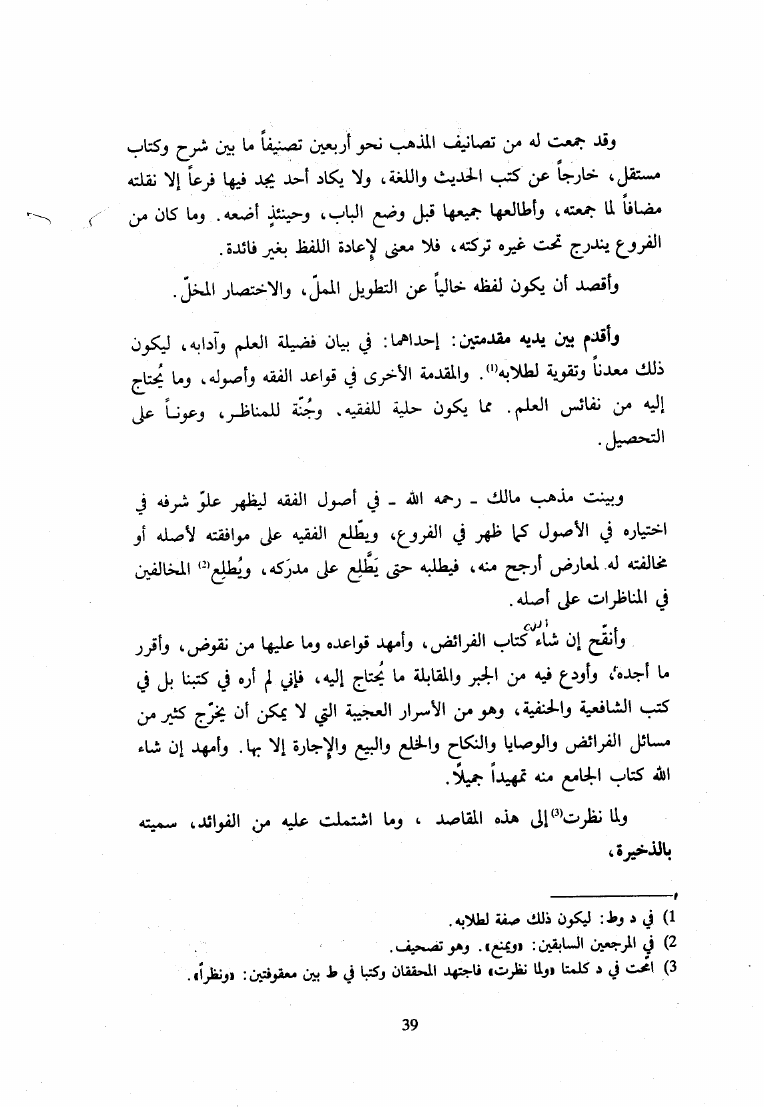 وقد جمعت له من تصانيف المذهب نحو أربعين تصنيفاً ما بين شرح وكتاب
مستقل، خارجاً عن كتب الحديث واللغة، ولا يكاد أحد يجد فيها فرعاً إلا نقلته
مضافاً لما جمعته، وأطالعها جميعها قبل وضع الباب، وحينئذٍ أضعه. وما كان من
الفروع يندرج تحت غيره تركته، فلا معنى لإعادة اللفظ بغير فائدة.
وأقصد أن يكون لفظه خالياً عن التطويل المملّ، والاختصار المخلّ.
وأقدم بين يديه مقدمتين: إحداهما: في بيان فضيلة العلم وآدابه، ليكون
ذلك معدناً وتقوية لطلابه(1). والمقدمة الأخرى في قواعد الفقه وأصوله، وما يُحتاج
إليه من نفائس العلم. مما يكون حلية للفقيه. وجُنّة للمناظر، وعوناً على
التحصيل.
وبينت مذهب مالك - رحمه الله - في أصول الفقه ليظهر علوّ شرفه في
اختياره في الأصول كما ظهر في الفروع، ويطّلع الفقيه على موافقته لأصله أو
مخالفته له لمعارض أرجح منه، فيطلبه حتى يَطَّلِع على مدرَكه، ويُطلِع(2) المخالفين
في المناظرات على أصله.
وأنقّح إن شاء الله كتاب الفرائض، وأمهد قواعده وما عليها من نقوض، وأقرر
ما أجده، وأودع فيه من الجبر والمقابلة ما يُحتاج إليه، فإني لم أره في كتبنا بل في
كتب الشافعية والحنفية، وهو من الأسرار العجيبة التي لا يمكن أن يخرّج كثير من
مسائل الفرائض والوصايا والنكاح والخلع والبيع والإجارة إلا بها. وأمهد إن شاء
الله كتاب الجامع منه تمهيداً جميلًا.
ولما نظرت(3) إلى هذه المقاصد ، وما اشتملت عليه من الفوائد، سميته
بالذخيرة،
1) في د وط: ليكون ذلك صفة لطلابه.
2) في المرجعين السابقين: «ويمنع». وهو تصحيف.
3) امّحت في د كلمتا «ولما نظرت» فاجتهد المحققان وكتبا في ط بين معقوفتين: «ونظراً».
39